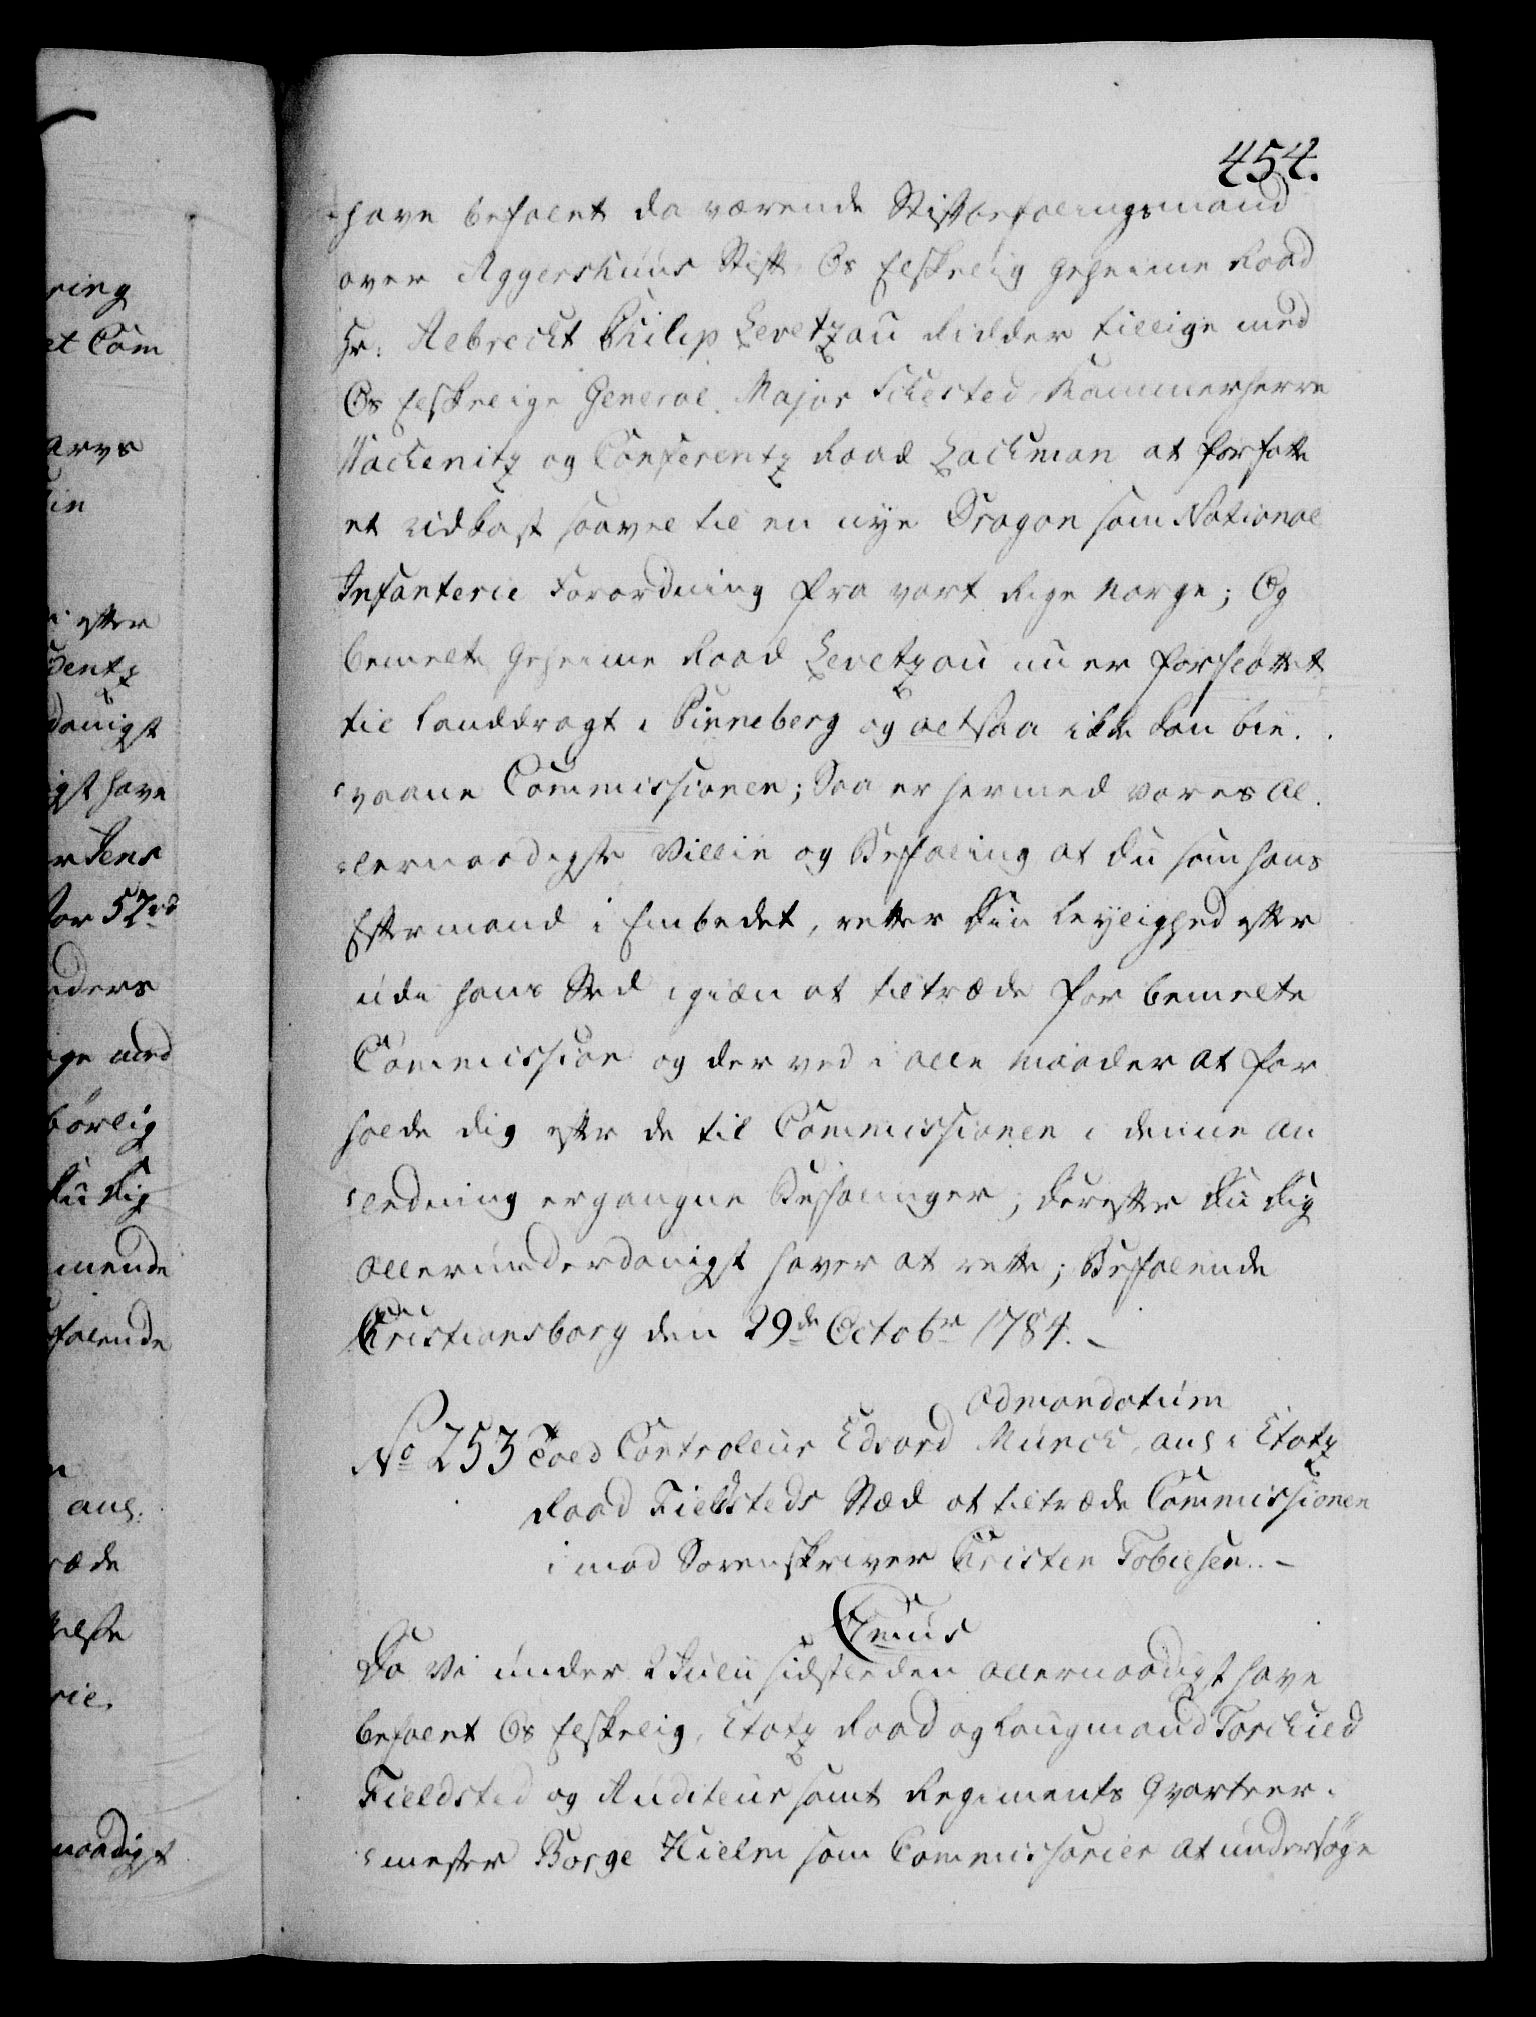 454.
have befalet da værende Stiftbefalingsmand
over Aggershuus Stift Os Elskelig Geheime Raad
Hr. Albrecht Philip Levetzau Ridder tillige med
Os Elskelige General Major Schested Kammerherre
Wackenitz og Conferentz Raad Lachman at forfatte
et Udkast saavel til en nye Dragon som National
Infanterie Forordning fra vort Rige Norge; Og
bemelte Geheime Raad Levetzau nu er forflöttet
til Landdragt i Pinneberg og altsaa ikke kan bie.
vaane Commissionen; Saa er hermed vores Al.
lernaadigste Villie og Befaling at du som hans
Eftermand i Embedet, retter Din Leylighed efter
udi hans Sted igien at tiltræde forbemelte
Commission og derved i alle Maader at for
holde dig efter de til Commissionen i denne An
ledning ergangne Befalinger, derefter Du dig
allerunderdanigst haver at rette; Befalende
Christiansborg den 29de Octobr 1784. -
Admandatum
No 253 Told Controleur Edvard Munch, ang: i Etatz
Raad Fieldsteds Stæd at tiltræde Commissionen
imod Sorenskriver Christen Tobiesen. -
Da Vi under 2 Julii sidstleden allernaadigst have
befalet Os Elskelig, Etatz Raad og Laugmand Torchild
Fieldsted og Auditeur samt Regiments Qvarteer.
mester Borge Hielm som Commissarier at undersöge
ring
et Com
arvs
in
efter
dentz
danigst
igst have
r Jens
for 57rd
nders
ge med
börlig
du dig
mende
falende
ang:
ræde
rie.
naadigst